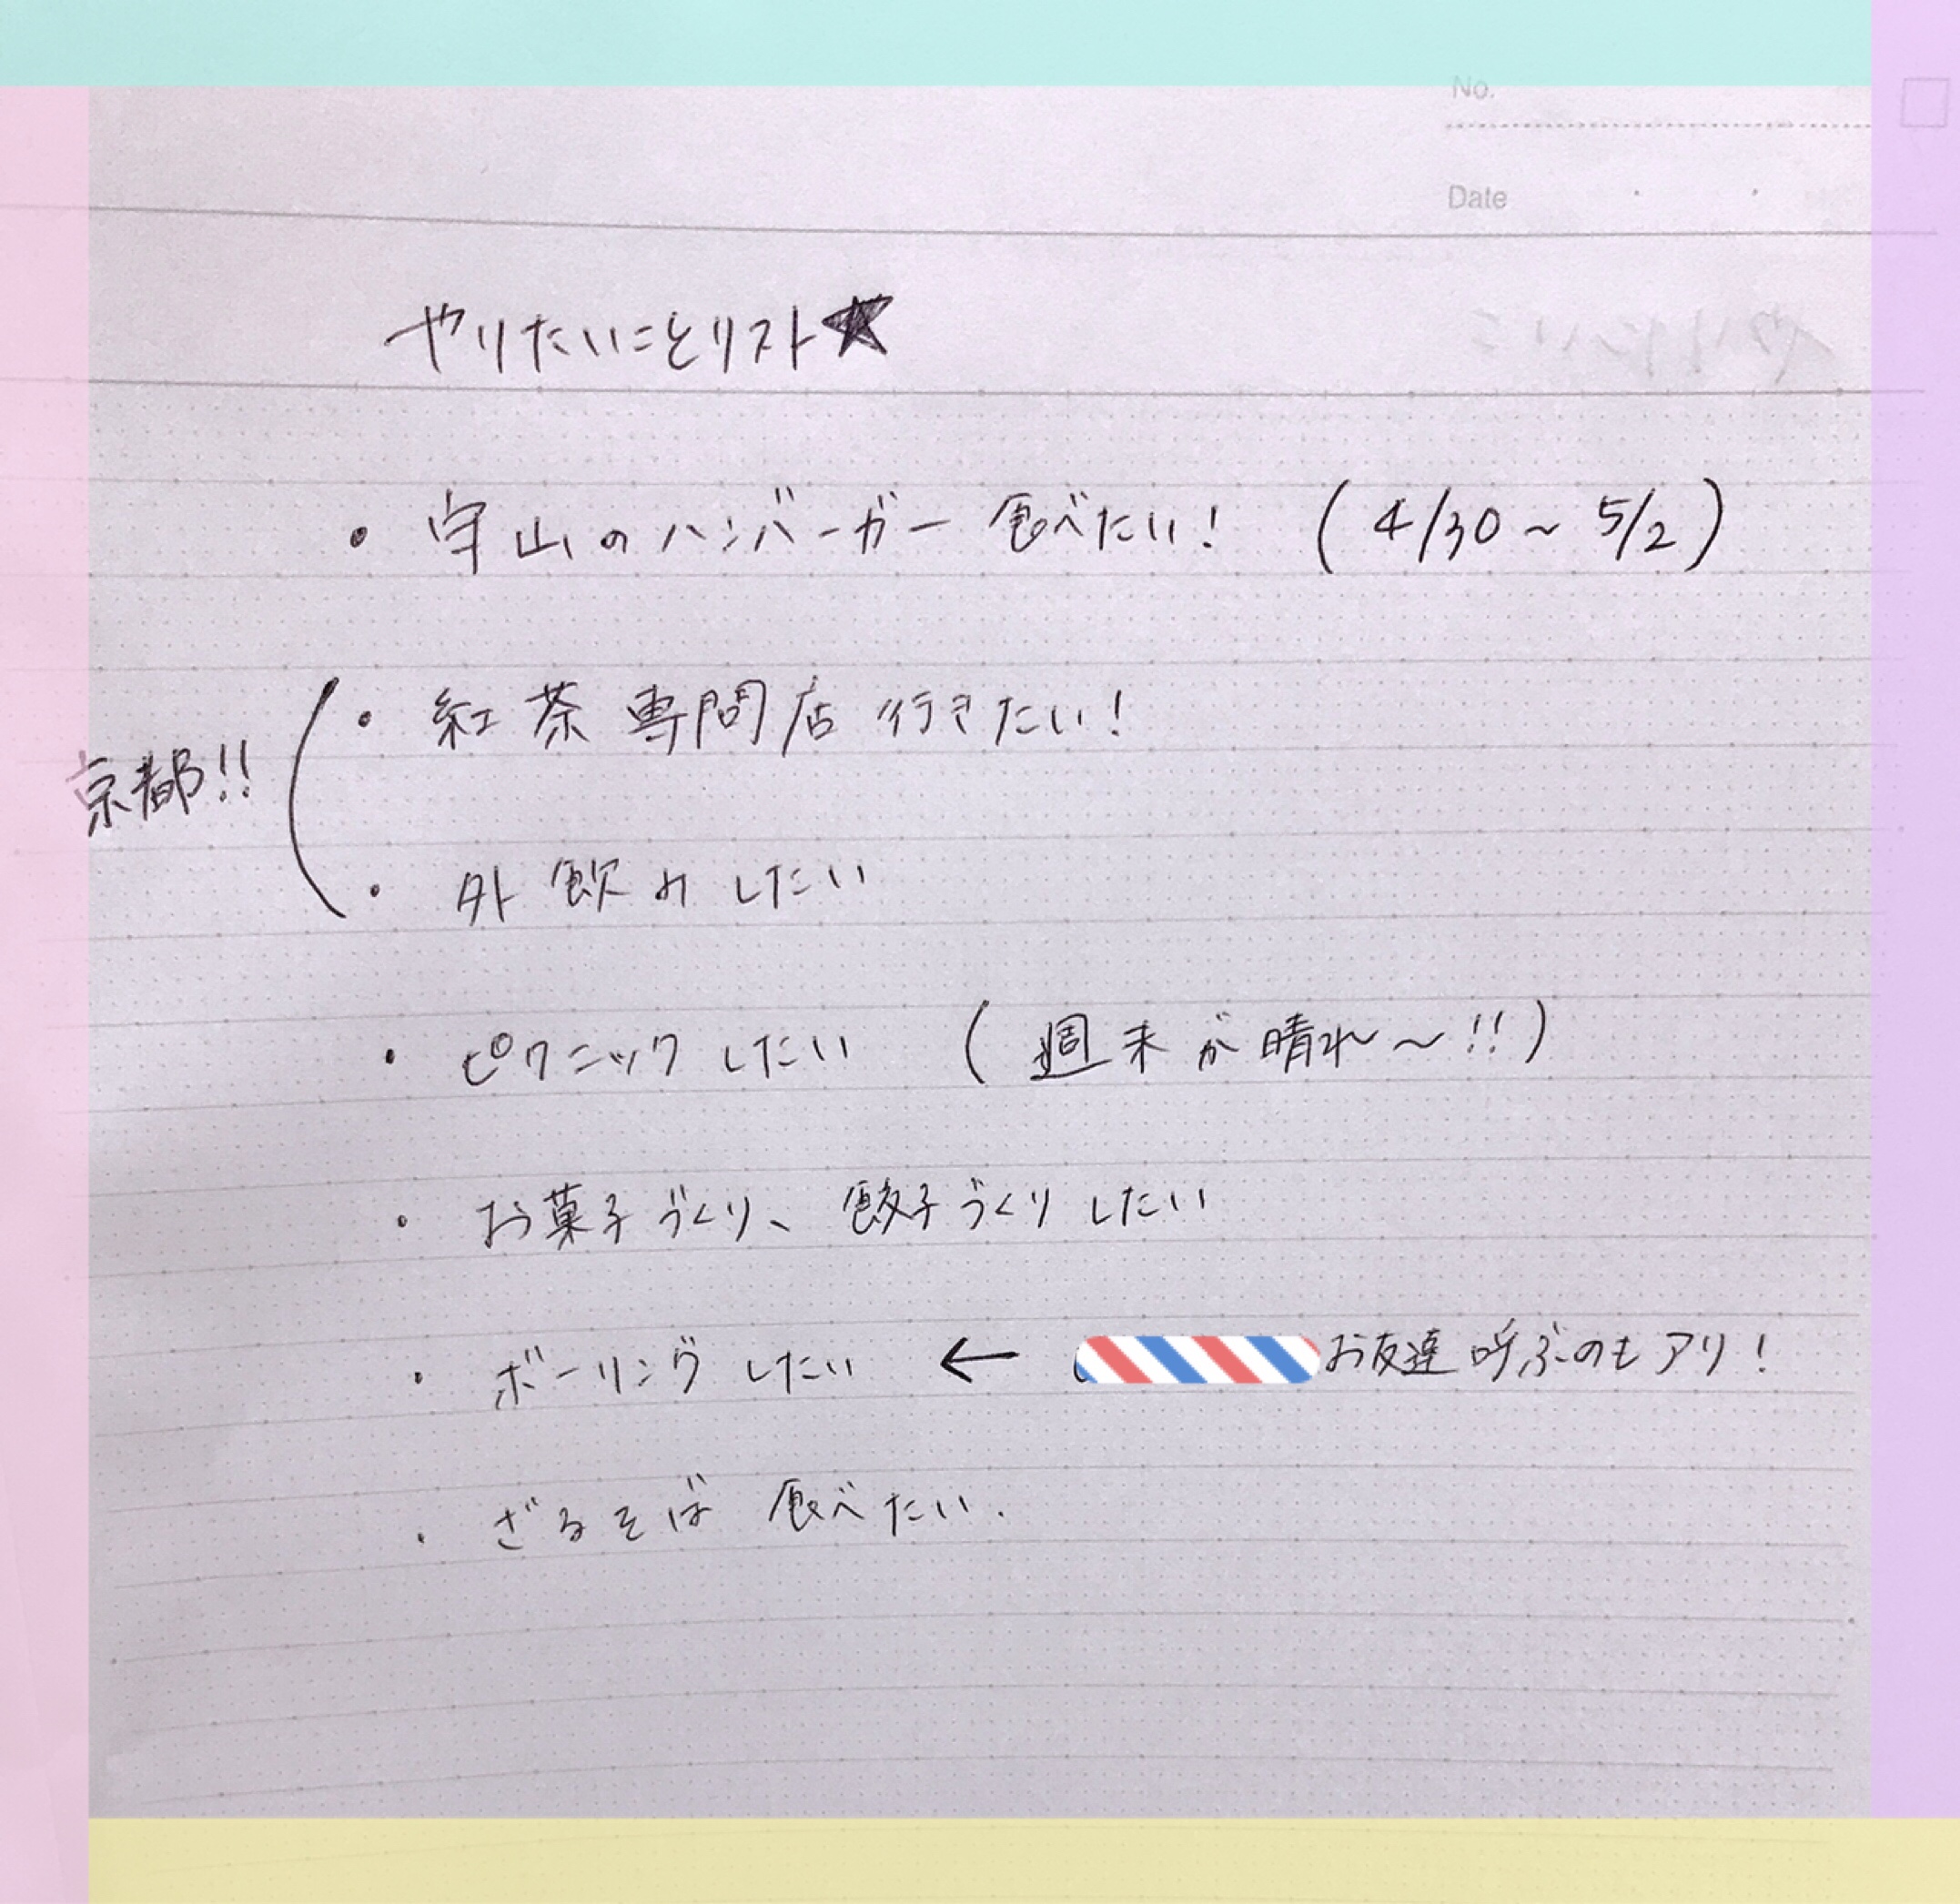 No.
Date
やりたいことリスト★
・守山のハンバーガー食べたい！（4/30～5/2）
・紅茶専門店行きたい！
京都!!
・外飲みしたい
・ピクニックしたい（週末が晴れ～!!）
・お菓子づくり、餃子づくりしたい
・ボーリングしたい ← お友達呼ぶのもアリ！
・ざるそば食べたい.